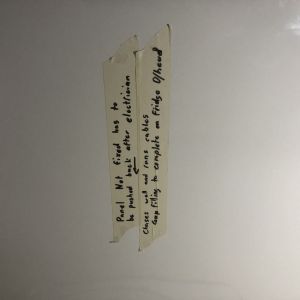 Panel Not fixed has to
be pushed back after electrician
Closes wall and runs cables
Gap filling to complete on Fridge O/head